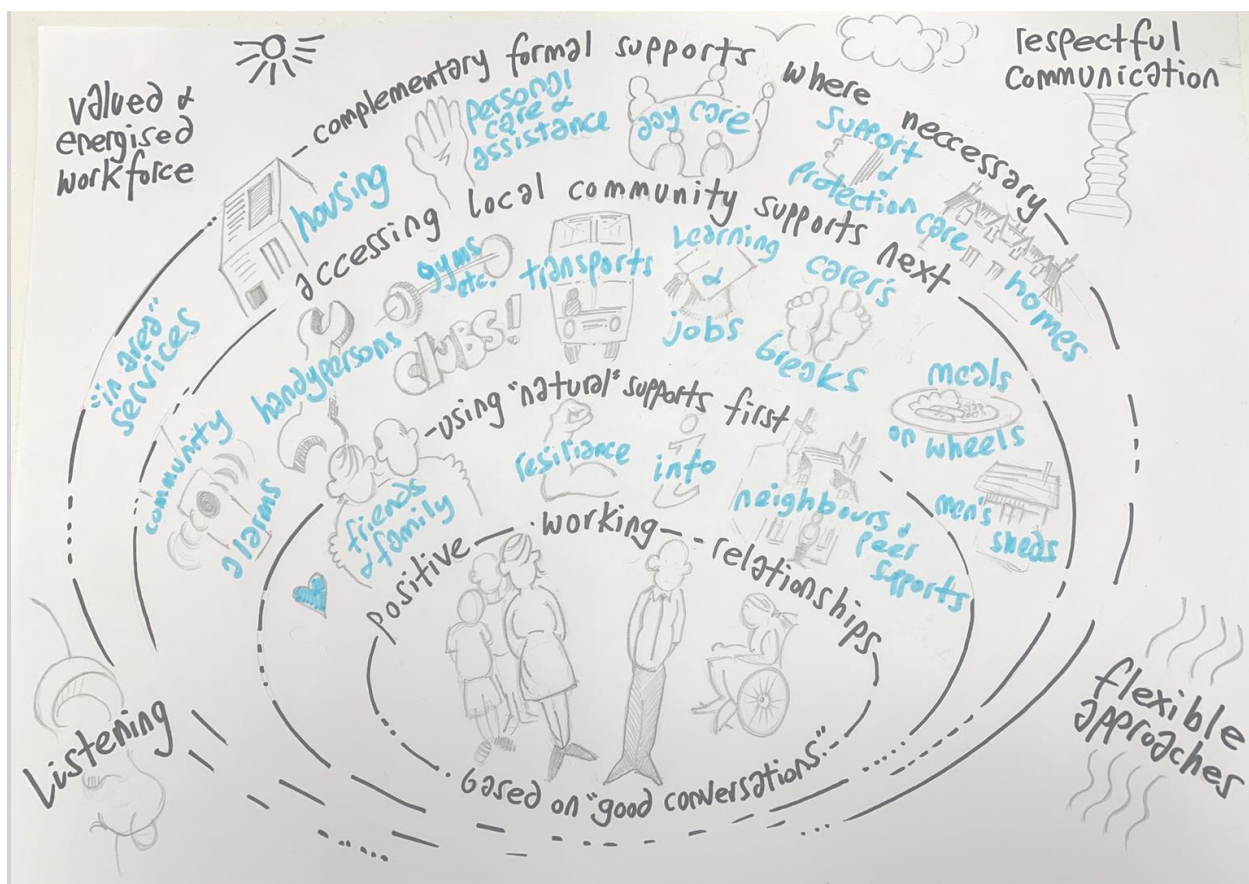 valued &
energised
workforce
respectful
communication
- complementary formal supports where neccessary -
"in area"
services
housing
personal
care &
assistance
day care
support
&
protection
care
homes
accessing local community supports next
community
alarms
handypersons
gyms
etc.
CLUBS!
transports
Learning
&
jobs
carer's
breaks
meals
on wheels
men's
sheds
- using "natural" supports first
friends
& family
resiliance
info
neighbours &
peer
supports
positive working relationships
based on "good conversations"
Listening
flexible
approaches